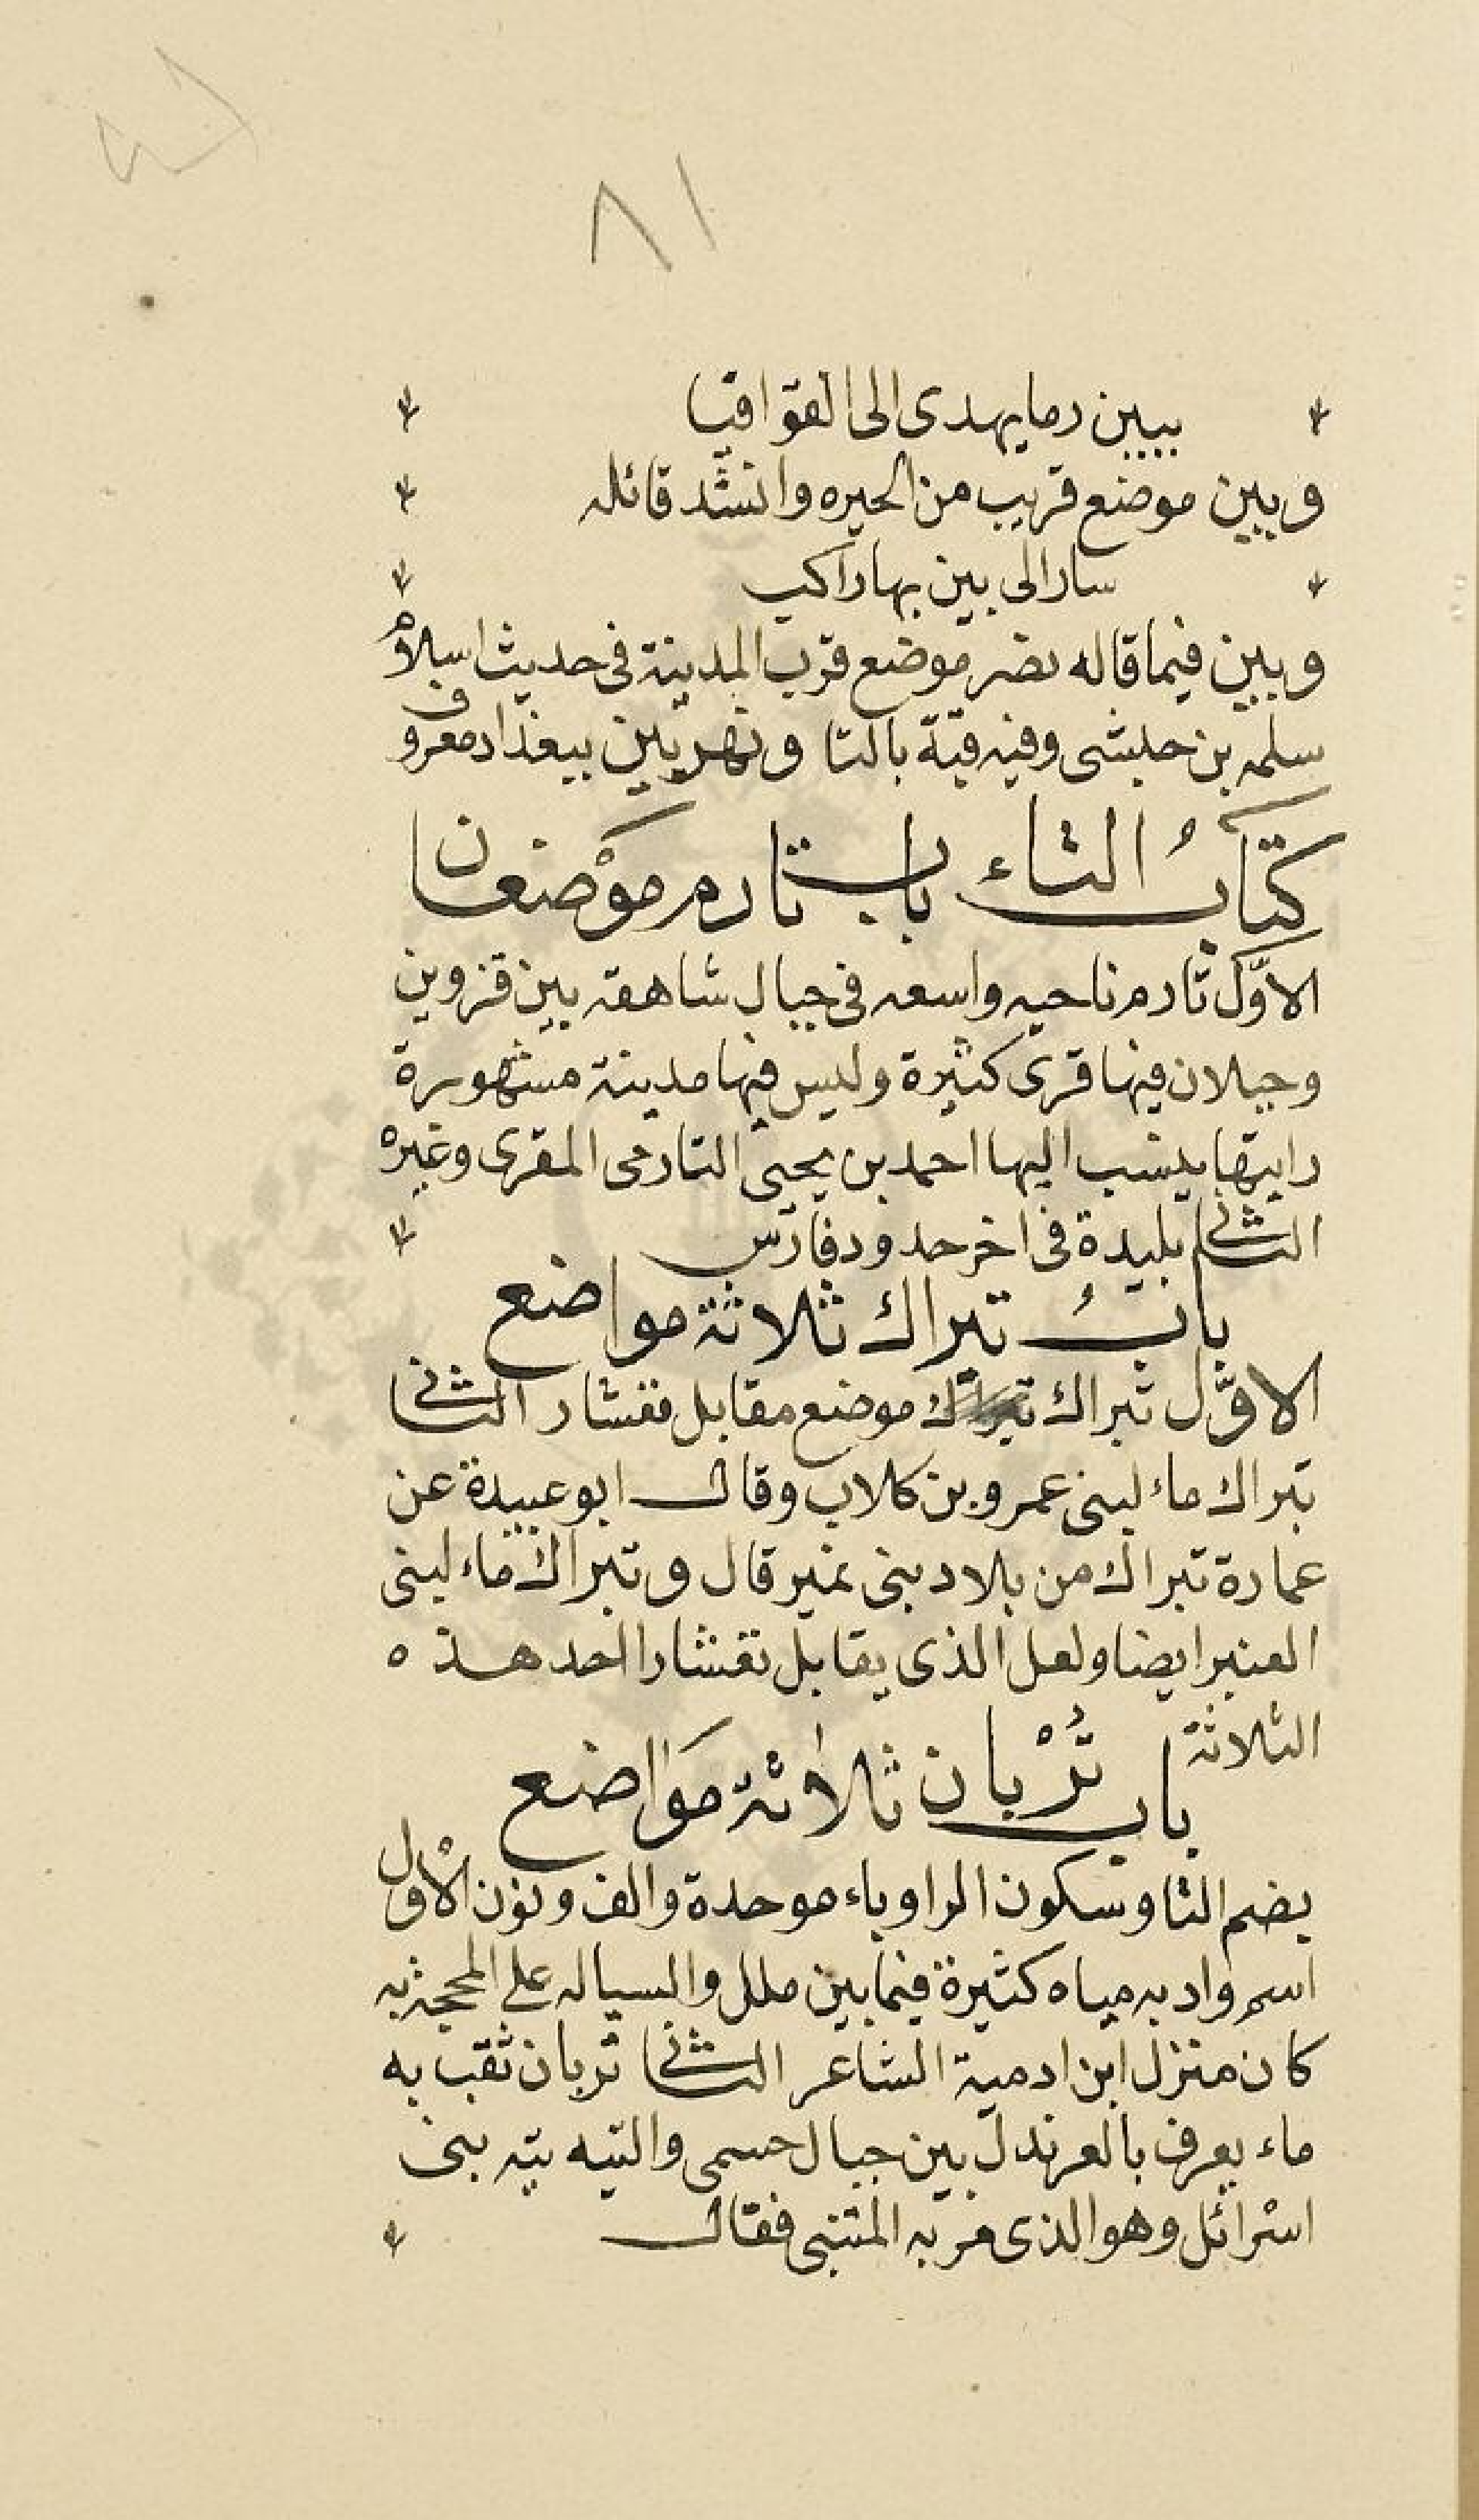 ٨١
ببين رمايهدى الى القوافيا
وبين موضع قريب من الحيره وانشد قائله
سار الى بين بها راكب
وبين فيما قاله نصر موضع قرب المدينة فى حديث اسلام
سلمه بن حبشى وفيه قتة بالتا ونهر بين ببغداد معروف
كتابُ التاء باب تارم موْضعان
الاوّل تارم ناحيه واسعه فى جبال شاهقه بين قزوين
وجيلان فيها قرى كثيرة وليس فيها مدينة مشهورة
رايتها ينسب اليها احمد بن يحيى التارمى المقرى وغيره
الثانى بليدة فى اخر حدود فارس
بابُ تبراك ثلاثة مواضع
الاوّل تبراك موضع مقابل نفشار الثانى
تبراك ماء لبنى عمرو بن كلاب وقال ابو عبيدة عن
عمارة تبراك من بلاد بنى نمير قال وتبراك ماء لبنى
العنبر ايضا ولعل الذى يقابل تفشار احد هذه
الثلاثة
باب تُرْبان ثلاثة مَواضع
بضم التا وسكون الرا وباء موحدة والف ونون الاول
اسم واد به مياه كثيرة فيما بين ملل والسياله على المحجة به
كان منزل ابن ادمية الشاعر الثانى تربان نقب به
ماء يعرف بالعرندل بين جبال حسمى والتيه تيه بنى
اسرائل وهو الذى مر به المتنبى فقال